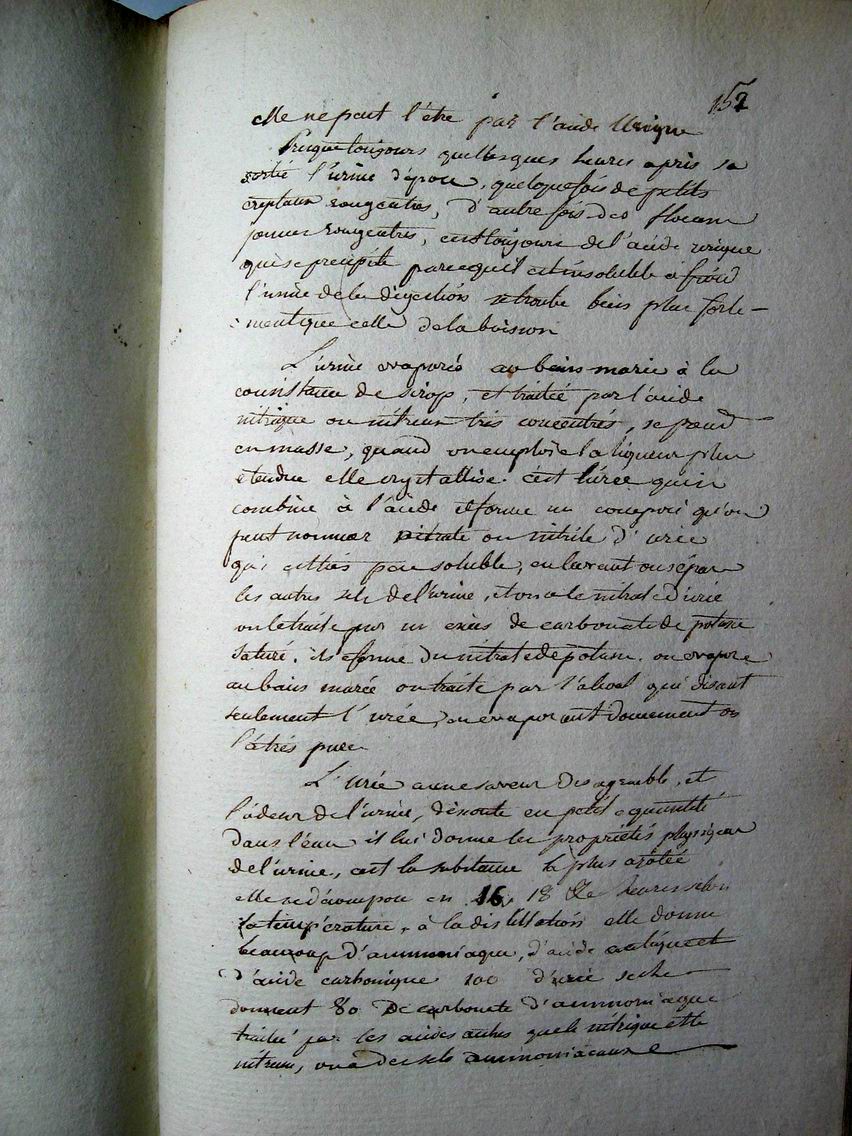 152
elle ne peut l'être par l'acide Urique
Presque toujours quelques heures après sa
sortie l'urine dépose, quelque fois de petits
cristaux rougeatres, d'autre fois des flocons
jaunes rougeatres, c'est toujours de l'acide urique
qui se précipite parcequ'il est insoluble à froid
l'urine de la digestion se trouble bien plus forte-
ment que celle de la boisson
L'urine evaporée au bain marie à la
consistance de sirop, et traitée par l'acide
nitrique ou nitreux très concentrés, se prend
en masse, quand on emploie la liqueur plus
etendue elle crystallise. c'est l'urée qui se
combine à l'acide et forme un composé qu'on
peut nommer nitrate ou nitrite d'urée
qui est très peu soluble, en lavant on sépare
les autres sels de l'urine, et on a le nitrate d'urée
on le traite par un excès de carbonate de potasse
saturé. il se forme du nitrate de potasse. on evapore
au bain marie on traite par l'alcool qui disout
seulement l'urée, en evaporant doucement on
l'a très pure
L'urée a une saveur desagreable, et
l'odeur de l'urine, dissoute en petite quantité
dans l'eau il lui donne les propriétés physiques
de l'urine, c'est la substance la plus azotée
elle se décompose en 16, 18 heures selon
la température, à la distillation elle donne
beaucoup d'ammoniaque, d'acide et
d'acide carbonique 100 d'urée seche
donnent 80 de carbonate d'ammoniaque
traitée par les acides autres que le nitrique et le
nitreux, on a des sels ammoniacaux